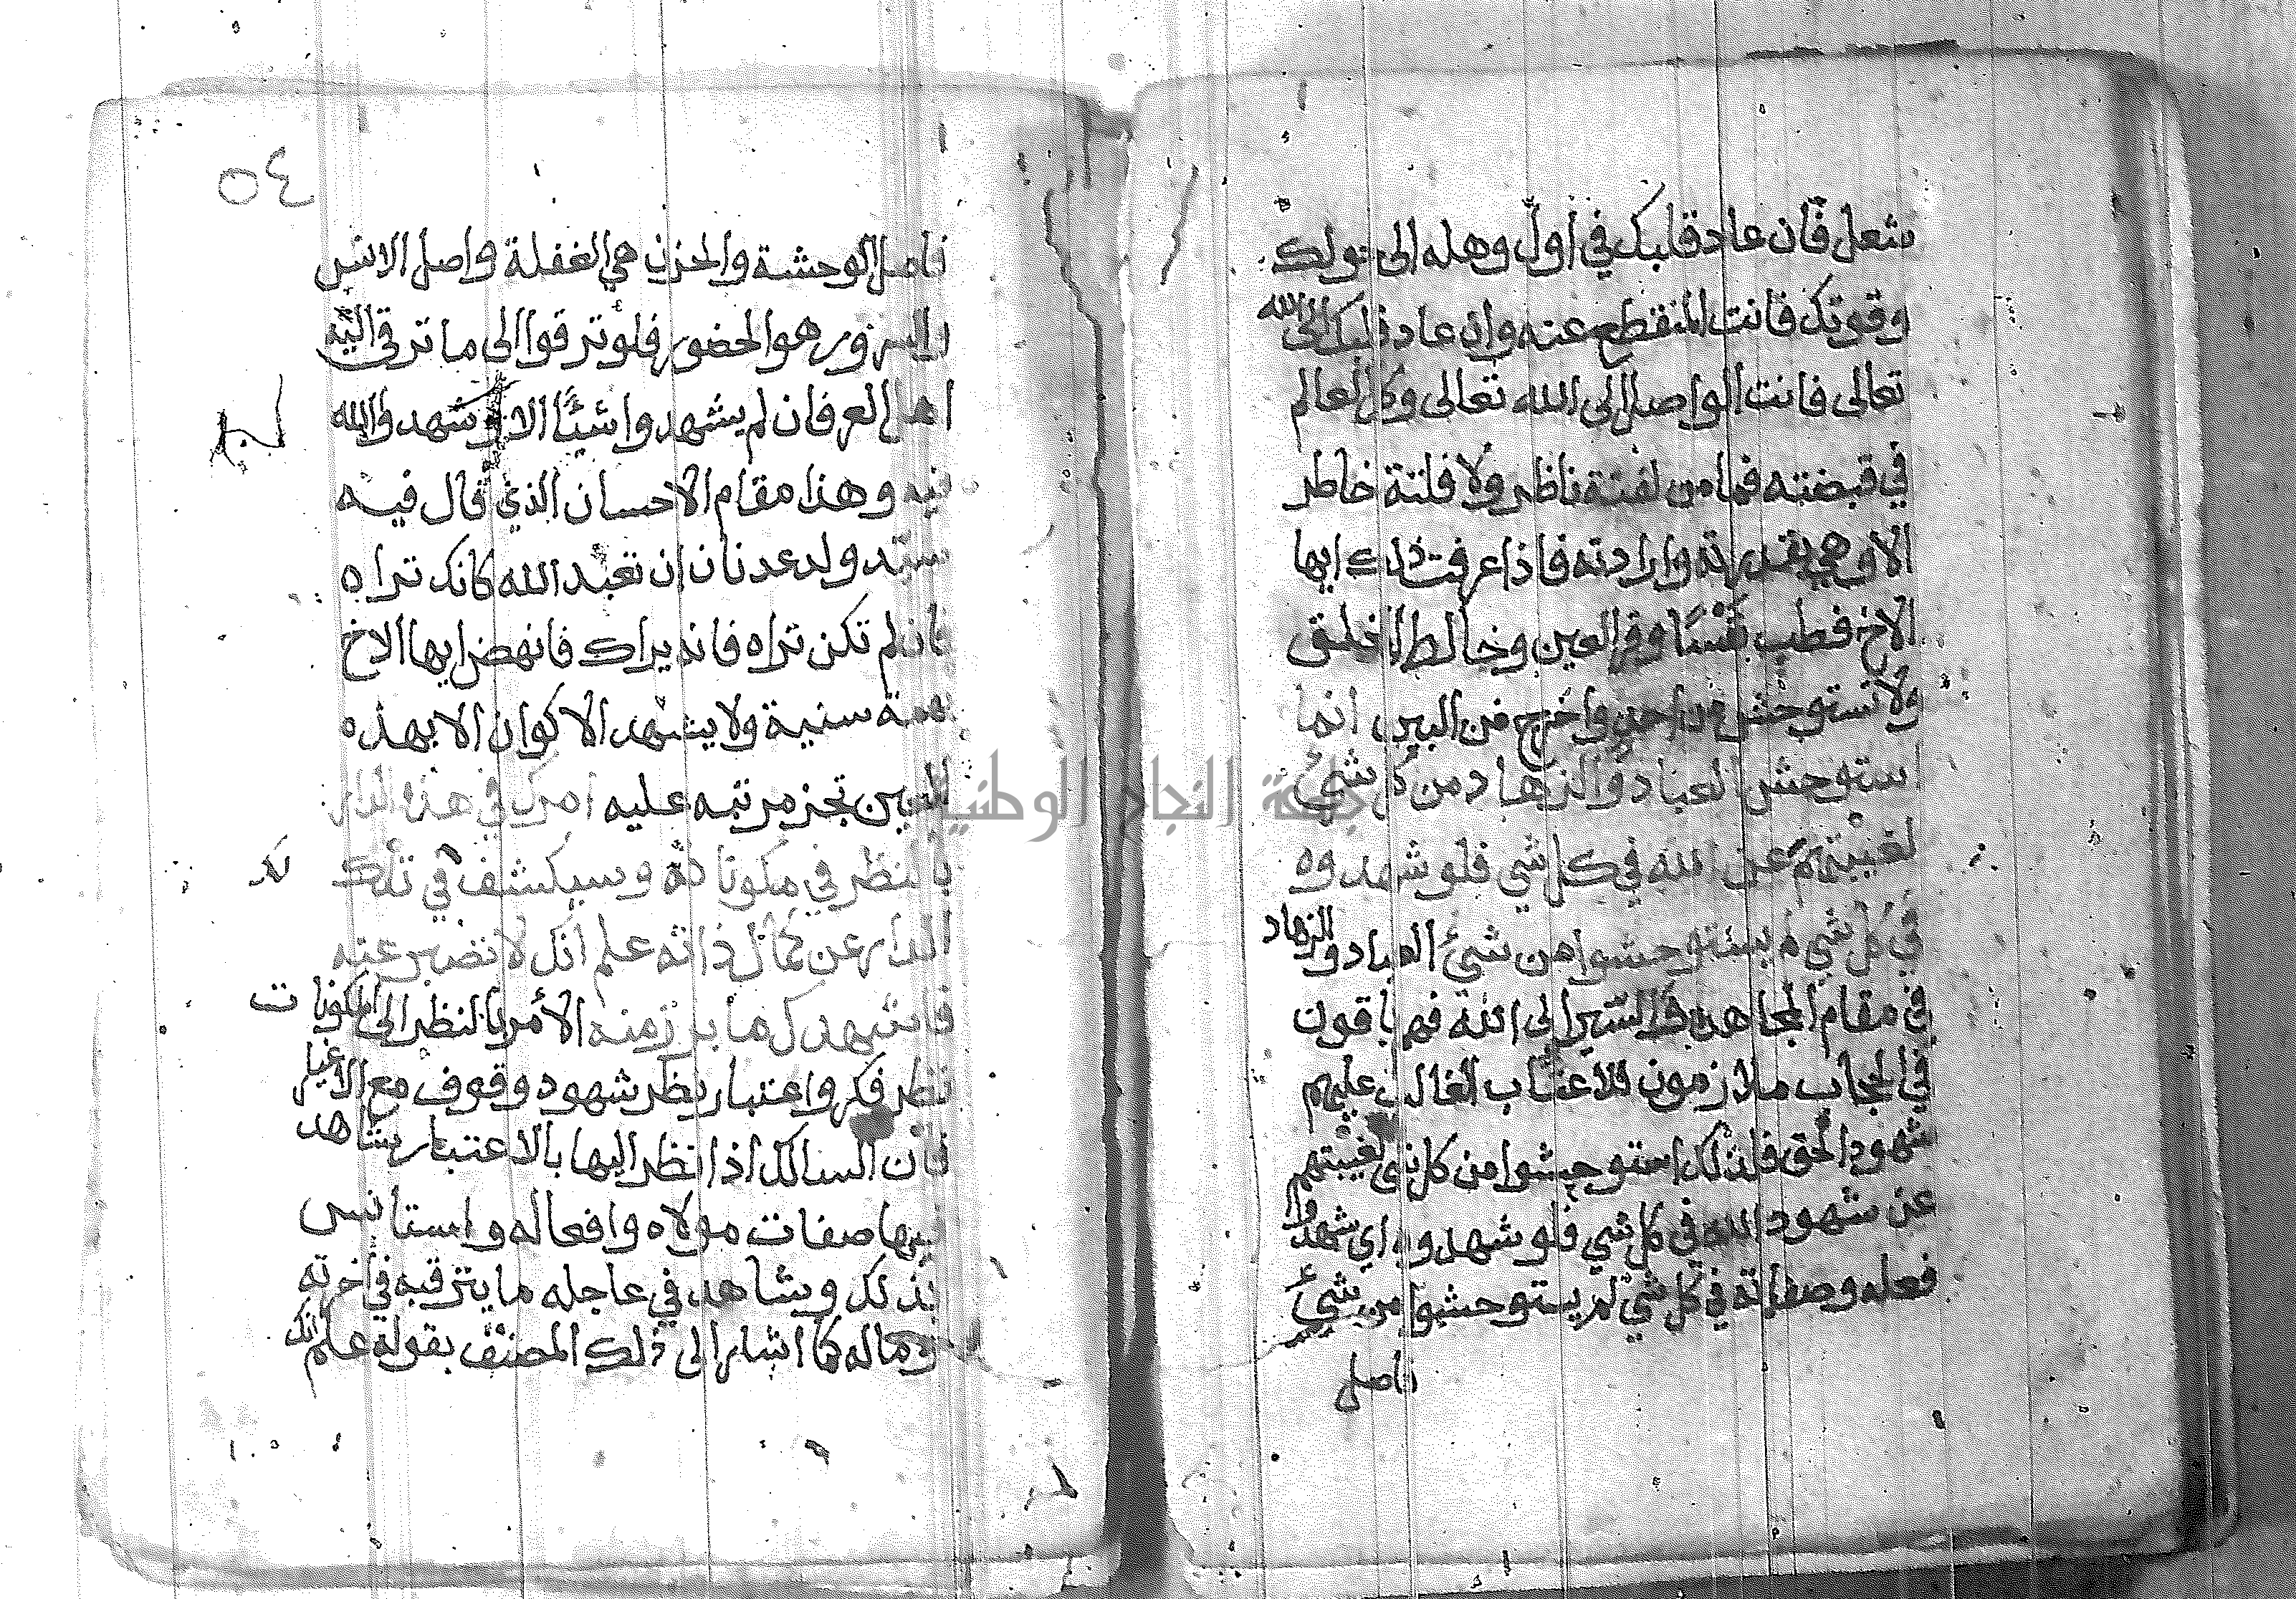 شعل فان عاد قلبك في اول وهله الى حولك
وقوتك فانت المنقطع عنه وان عاد قلبك الى الله
تعالى فانت الواصل الى الله تعالى وكل العالم
في قبضته فما من لفتة ناظر ولا فلتة خاطر
الا وهي بقدرته وارادته فاذا عرفت ذلك ايها
الاخ فطب نفسًا وقر العين وخالط الخلق
ولا تستوحش من احد واخرج من البين انما
استوحش العباد والزهاد من كل شيئ
لغيبتهم عن الله في كل شي فلو شهدوه
في كل شي لم يستوحشوا من شيئ العباد والزهاد
في مقام المجاهدة في السير الى الله فهم باقون
في الحجاب ملازمون للاعتاب الغالب عليهم
شهود الحق فلذلك استوحشوا من كل شي لغيبتهم
عن شهود الله في كل شي فلو شهدوه اي شهدوا
فعله وصفاته في كل شي لم يستوحشوا من شيئ
فاصل
٥٤
فاصل الوحشة والحزن هي الغفلة واصل الانس
والسرور هو الحضور فلو ترقوا الى ما ترقى اليه
اهل العرفان لم يشهدوا شيًا الا وشهدوا الله
فيه وهذا مقام الاحسان الذي قال فيه
سيد ولد عدنان ان تعبد الله كانك تراه
فان لم تكن تراه فانه يراك فانهض ايها الاخ
بهمة سنية ولا يشهد الاكوان الا بهذه
العين تجز مرتبه عليه امرك في هذه الدار
بالنظر في مكوناته وسيكشف في تلك
الدار عن كمال ذاته علم انك لا تصبر عنه
فاشهدك ما برز منه الأمر بالنظر الى المكونات
نظر فكر واعتبار ينظر شهود وقوف مع الاغيار
فان السالك اذا نظر اليها بالاعتبار يشاهد
فيها صفات مولاه وافعاله واستانس
بذلك ويشاهد في عاجله ما يترقبه في اخرته
وماله كما اشار الى ذلك المصنف بقوله علم انك
جامعة النجاح الوطنية